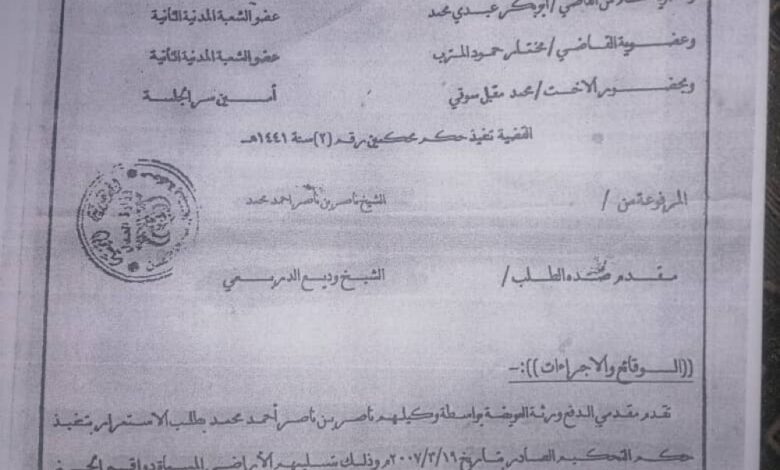 القاضي/أبوبكر عبدي محمد عضو الشعبة المدنية الثانية
وعضوية القاضي/مختار حمود المترب عضو الشعبة المدنية الثانية
وبحضور الاخت/محمد مقبل سوقي أمين سر الجلسة
القضية تنفيذ حكم محكمين رقم (٢) سنة ١٤٤١هـ
المرفوعة من / الشيخ ناصر بن ناصر احمد محمد
مقدم ضده الطلب/ الشيخ وديع الدريمي
((الوقائع والاجراءات)):-
تقدم مقدمي الدفع ورثة العويضة بواسطة وكيلهم ناصر بن ناصر أحمد محمد بطلب الاستمرار بتنفيذ
حكم التحكيم الصادر بتاريخ ٢٠٠٧/٣/١٩م وذلك تسليمهم الأراضي